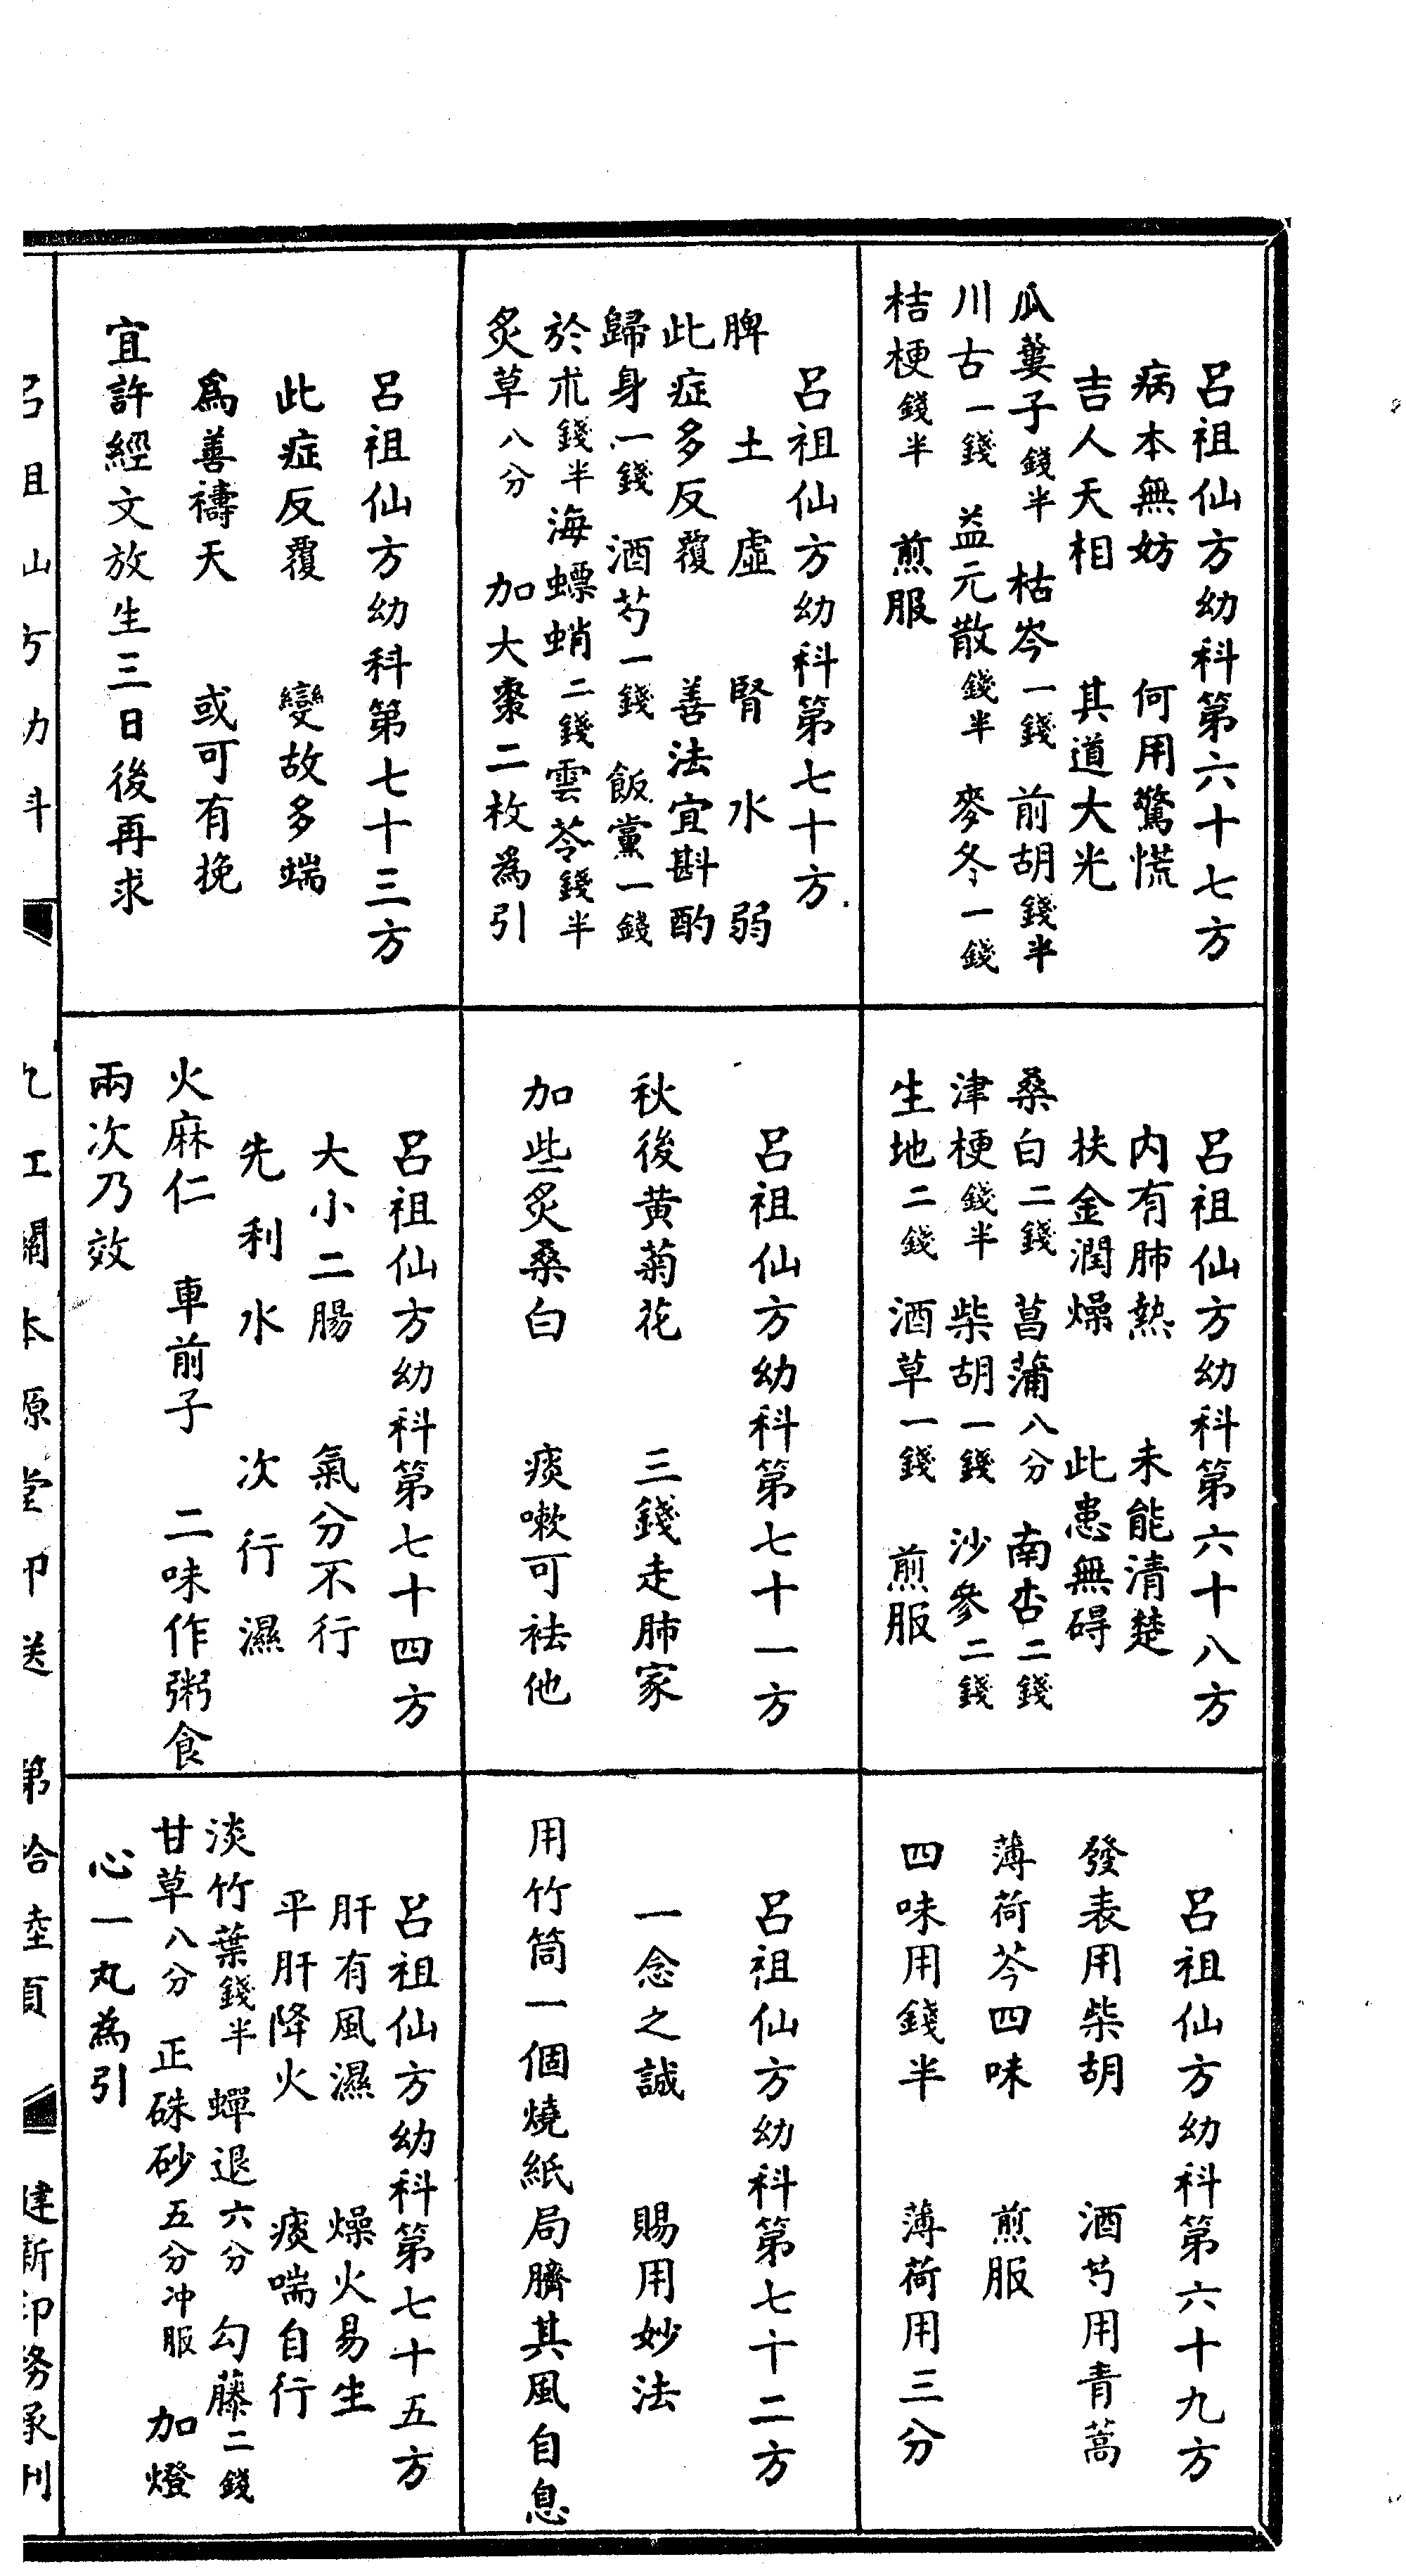 呂祖仙方幼科第六十七方
病本無妨　何用驚慌
吉人天相　其道大光
瓜蔞子錢半　枯岑一錢　前胡錢半
川古一錢　益元散錢半　麥冬一錢
桔梗錢半　煎服
呂祖仙方幼科第六十八方
内有肺熱　未能清楚
扶金潤燥　此患無碍
桑白二錢　菖蒲八分　南杏二錢
津梗錢半　柴胡一錢　沙參二錢
生地二錢　酒草一錢　煎服
呂祖仙方幼科第六十九方
發表用柴胡　酒芍用青蒿
薄荷芩四味　煎服
四味用錢半　薄荷用三分
呂祖仙方幼科第七十方
脾土虛　腎水弱
此症多反覆　善法宜斟酌
歸身一錢　酒芍一錢　飯黨一錢
於朮錢半海螵蛸二錢雲苓錢半
炙草八分　加大棗二枚為引
呂祖仙方幼科第七十一方
秋後黄菊花　三錢走肺家
加些炙桑白　痰嗽可袪他
呂祖仙方幼科第七十二方
一念之誠　賜用妙法
用竹筒一個燒紙局臍其風自息
呂祖仙方幼科第七十三方
此症反覆　變故多端
為善禱天　或可有挽
宜許經文放生三日後再求
呂祖仙方幼科第七十四方
大小二腸　氣分不行
先利水　次行濕
火麻仁　車前子　二味作粥食
兩次乃效
呂祖仙方幼科第七十五方
肝有風濕　燥火易生
平肝降火　痰喘自行
淡竹葉錢半　蟬退六分　勾藤二錢
甘草八分　正硃砂五分冲服　加燈
心一丸為引
呂祖仙方幼科　九江關本源堂印送　第拾陸頁　建新印務承刊